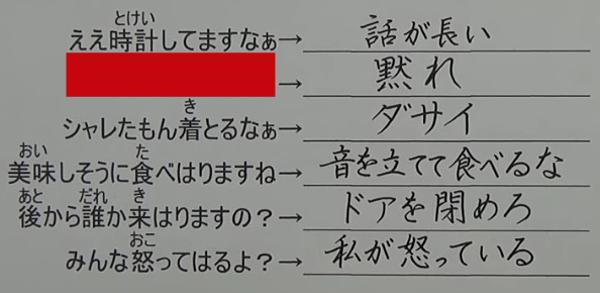 ええ時計してますなぁ→ 話が長い
→ 黙れ
シャレたもん着とるなぁ→ ダサイ
美味しそうに食べはりますね→ 音を立てて食べるな
後から誰か来はりますの？→ ドアを閉めろ
みんな怒ってはるよ？→ 私が怒っている